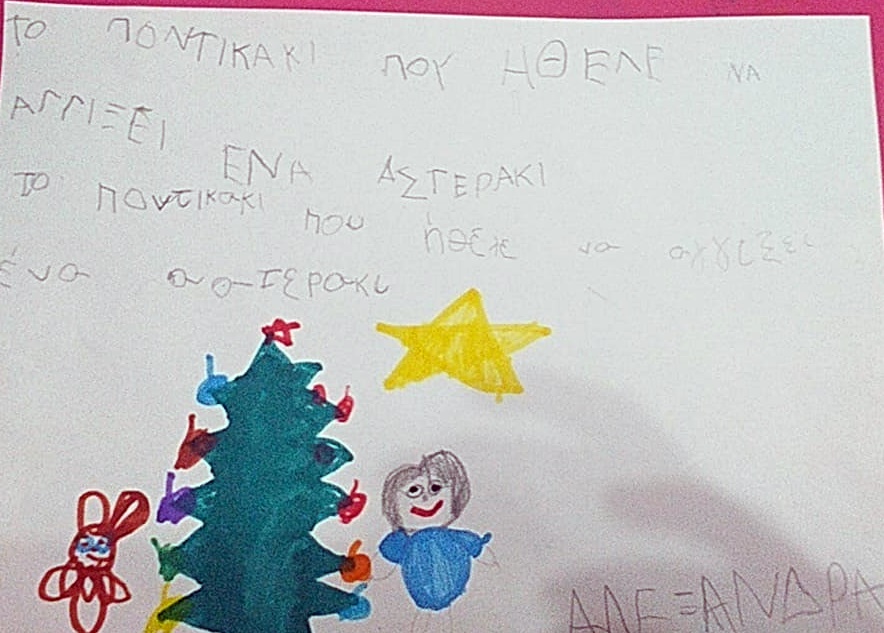 ΤΟ ΠΟΝΤΙΚΑΚΙ ΠΟΥ ΗΘΕΛΕ ΝΑ
ΑΓΓΙΞΕΙ
ΕΝΑ ΑΣΤΕΡΑΚΙ
Το ποντικακι που ήθελε να αγγιξει
ένα αστερακι
ΑΛΕΞΑΝΔΡΑ